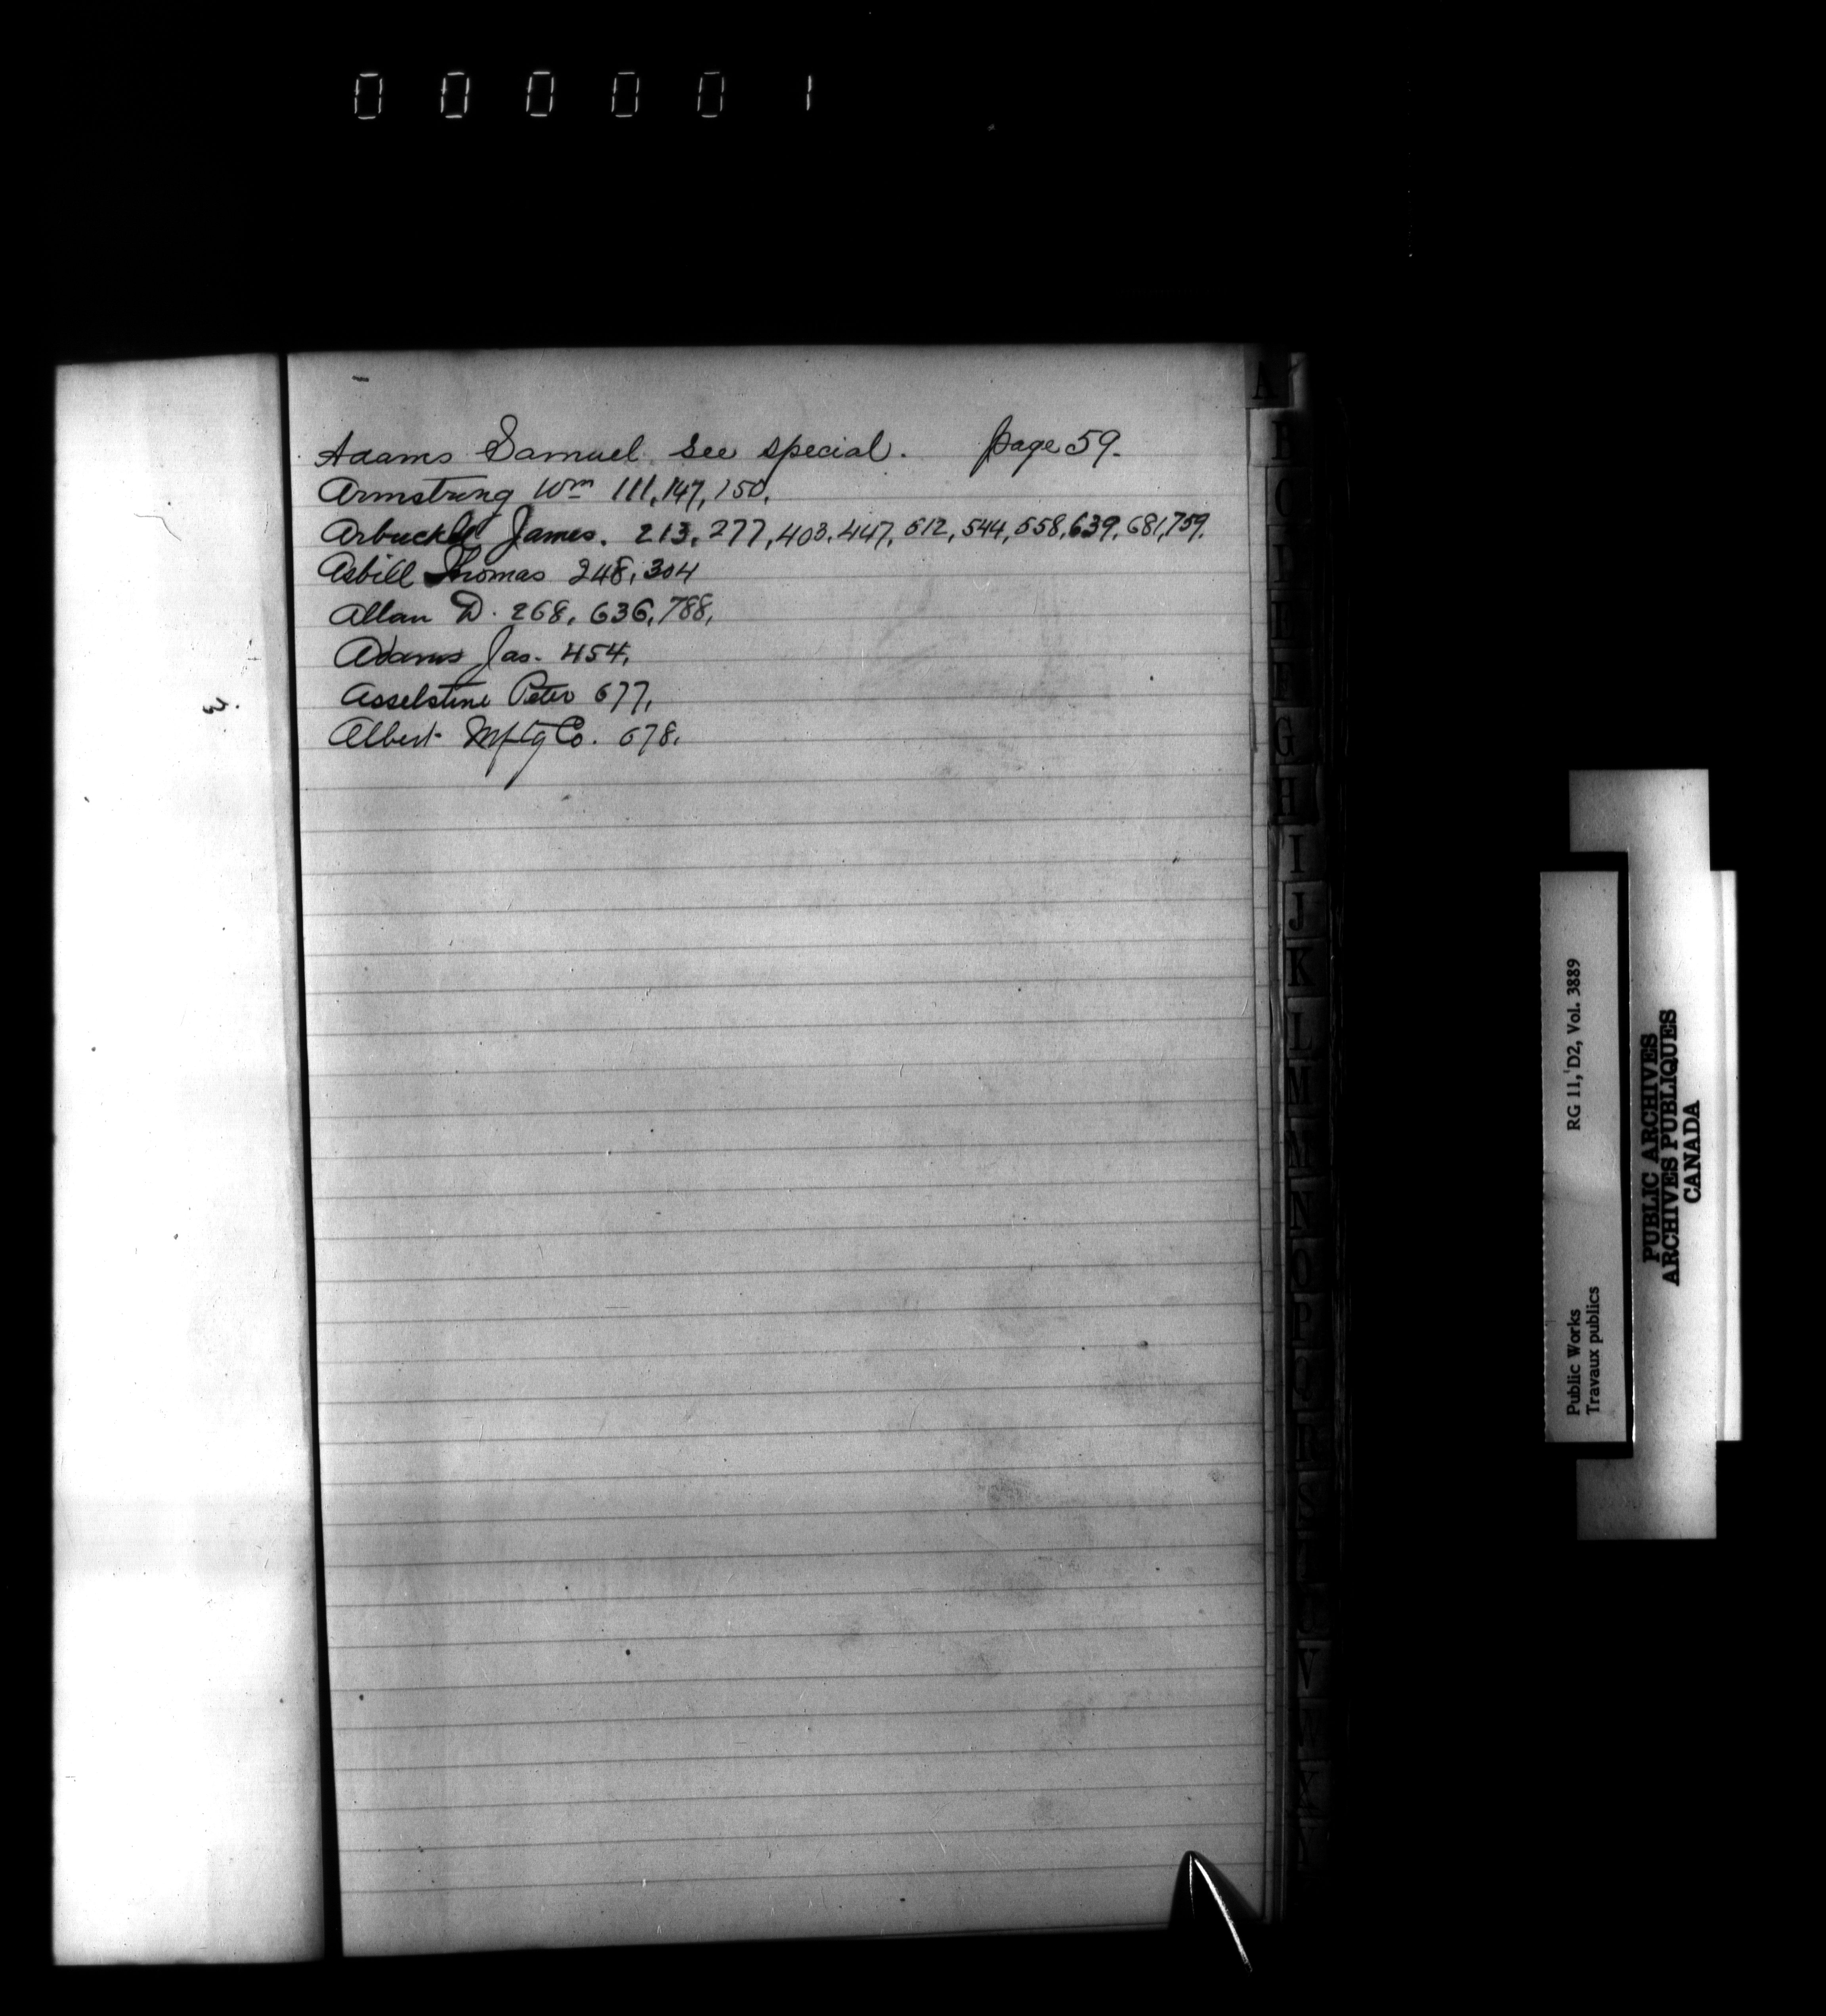 000001
Adams Samuel see special. page 59.
Armstrong Wm 111, 147, 150.
Arbuckle James. 213, 277, 403, 447, 512, 544, 558, 639, 681, 759.
Asbill Thomas 248, 304
Allan D. 268, 636, 788,
Adams Jas. 454,
Asselstine Peter 677,
Albert Mftg Co. 678.
A
B
C
D
E
F
G
H
I
J
K
L
M
M
N
O
P
Q
R
S
T
U
V
W
X
Y
Public Works RG 11, D2, Vol. 3889
Travaux publics
PUBLIC ARCHIVES
ARCHIVES PUBLIQUES
CANADA